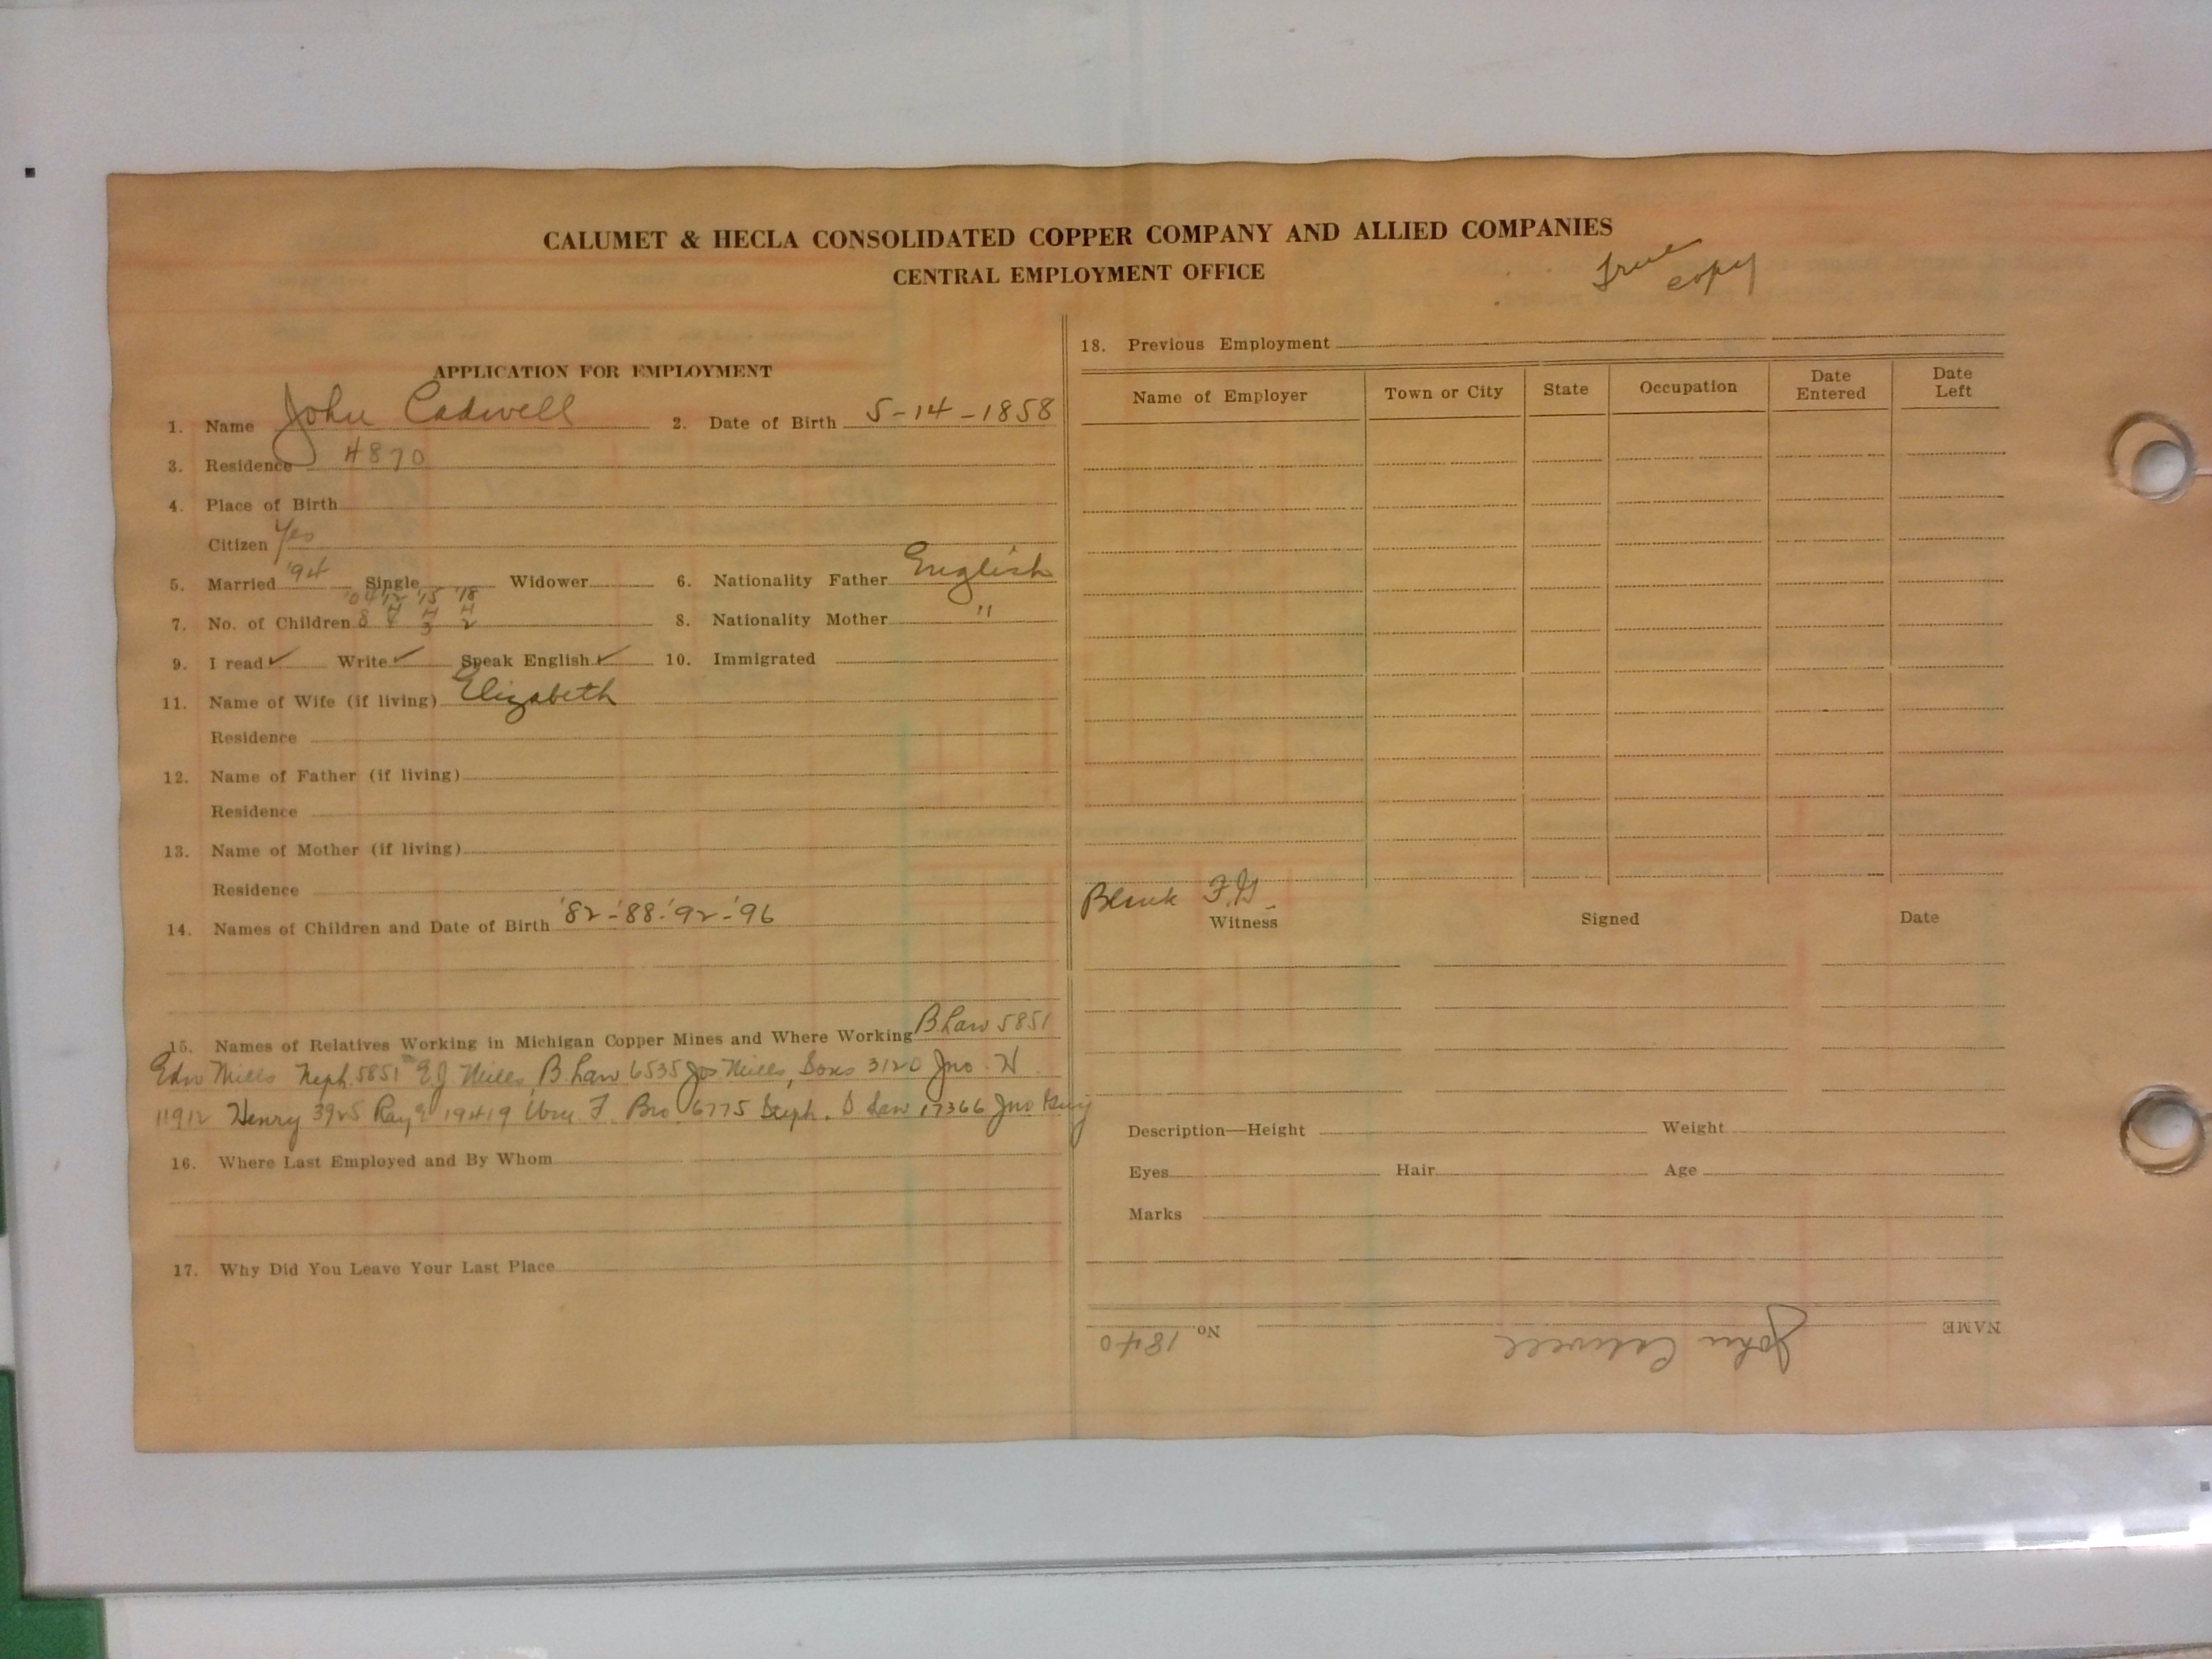 CALUMET & HECLA CONSOLIDATED COPPER COMPANY AND ALLIED COMPANIES
CENTRAL EMPLOYMENT OFFICE
True copy
APPLICATION FOR EMPLOYMENT
1. Name John Cadwell 2. Date of Birth 5-14-1858
3. Residence 4870
4. Place of Birth
Citizen Yes
5. Married '94 Single Widower 6. Nationality Father English
'04 '12 '15 '18
7. No. of Children 8 4 4 4 8. Nationality Mother "
3 2
9. I read ✓ Write ✓ Speak English ✓ 10. Immigrated
11. Name of Wife (if living) Elizabeth
Residence
12. Name of Father (if living)
Residence
13. Name of Mother (if living)
Residence
14. Names of Children and Date of Birth '82-'88-'92-'96
15. Names of Relatives Working in Michigan Copper Mines and Where Working B. Law 5851
Edw Mills Neph. 5851 E.J. Mills, B. Law 6535 Jos Mills, Sons 3120 Jno. H
11912 Henry 3925 Ray E 19419 Wm. F. Bro 6775 Steph. S Law 17366 Jno
16. Where Last Employed and By Whom
17. Why Did You Leave Your Last Place
18. Previous Employment
Name of Employer Town or City State Occupation Date Entered Date Left
Blank F.G.
Witness Signed Date
Description—Height Weight
Eyes Hair Age
Marks
NAME John Cadwell No. 1840